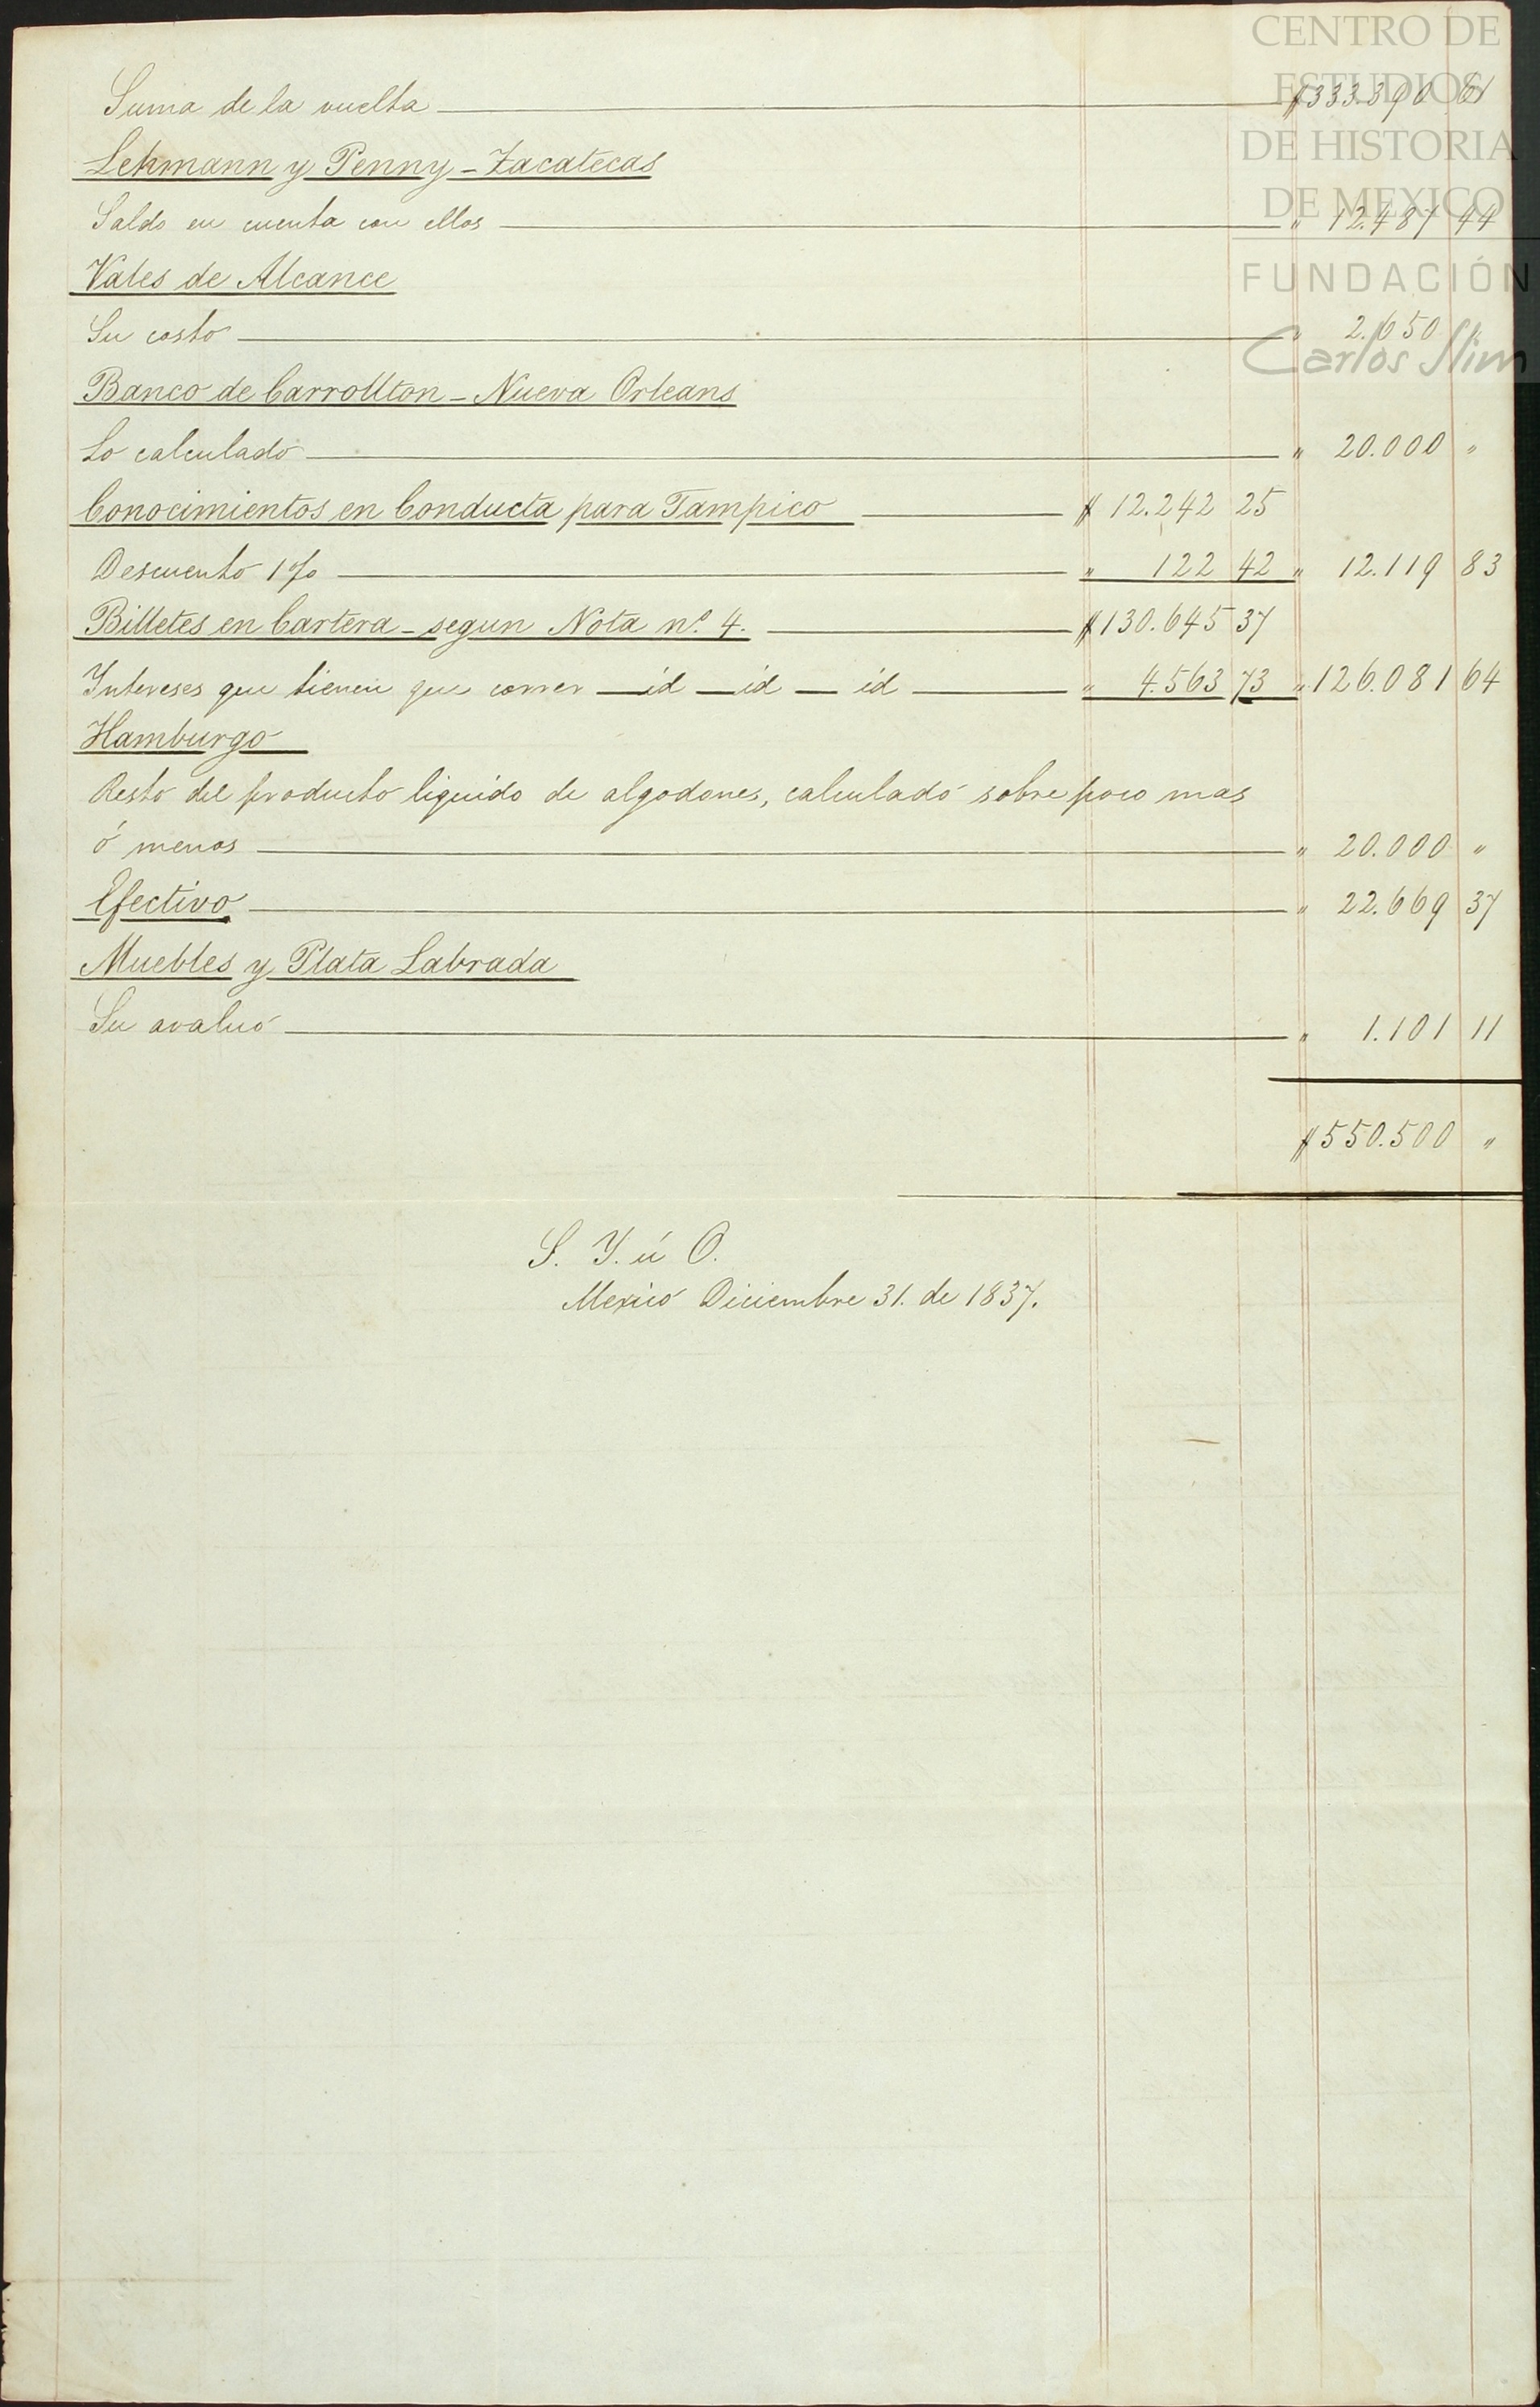 CENTRO DE
ESTUDIOS
DE HISTORIA
DE MEXICO
FUNDACIÓN
Carlos Slim
Suma de la vuelta $333.390 61
Lehmann y Penny - Zacatecas
Saldo en cuenta con ellos " 12.487 44
Vales de Alcance
Su costo " 2.650 "
Banco de Carrollton - Nueva Orleans
Lo calculado " 20.000 "
Conocimientos en Conducta para Tampico $ 12.242 25
Descuento 1% " 122 42 " 12.119 83
Billetes en Cartera - segun Nota nº 4. $130.645 37
Intereses que tienen que correr - id - id - id " 4.563 73 " 126.081 64
Hamburgo
Resto del producto liquido de algodones, calculado sobre poco mas
ó menos " 20.000 "
Efectivo " 22.669 37
Muebles y Plata Labrada
Su avaluó " 1.101 11
$550.500 "
S. Y. ú O.
Mexico Diciembre 31. de 1837.